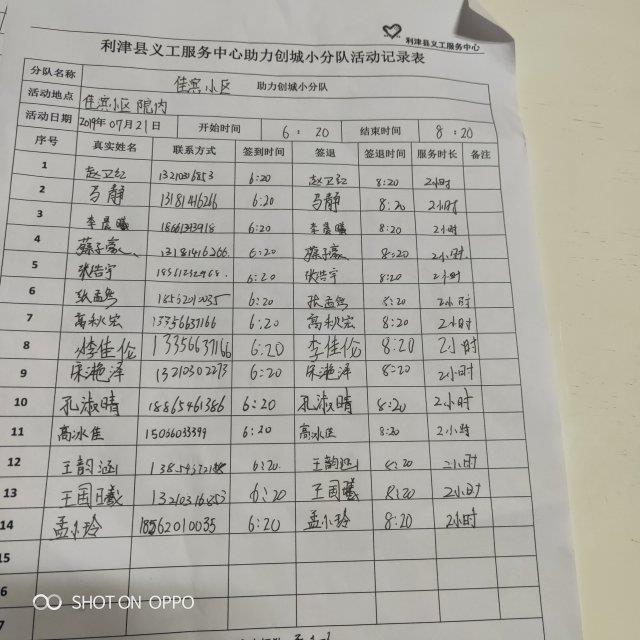 利津县义工服务中心
利津县义工服务中心助力创城小分队活动记录表
分队名称 佳滨小区 助力创城小分队
活动地点 佳滨小区院内
活动日期 2019年07月21日 开始时间 6:20 结束时间 8:20
序号 真实姓名 联系方式 签到时间 签退 签退时间 服务时长 备注
1 赵卫红 13210316853 6:20 赵卫红 8:20 2小时
2 马静 13181416266 6:20 马静 8:20 2小时
3 李晨曦 6:20 李晨曦 8:20 2小时
4 13181416266 6:20 8:20 2小时
5 张浩宇 6:20 张浩宇 8:20 2小时
6 张孟然 18562010035 6:20 张孟然 8:20 2小时
7 高秋宏 13356637166 6:20 高秋宏 8:20 2小时
8 李佳伦 13356637166 6:20 李佳伦 8:20 2小时
9 宋滟泽 13210302273 6:20 宋滟泽 8:20 2小时
10 孔淑晴 18865461386 6:20 孔淑晴 8:20 2小时
11 高冰佳 15066033399 6:20 高冰佳 8:20 2小时
12 王韵涵 6:20 王韵涵 8:20 2小时
13 王国曦 13210316853 6:20 王国曦 8:20 2小时
14 孟小玲 18562010035 6:20 孟小玲 8:20 2小时
15
SHOT ON OPPO